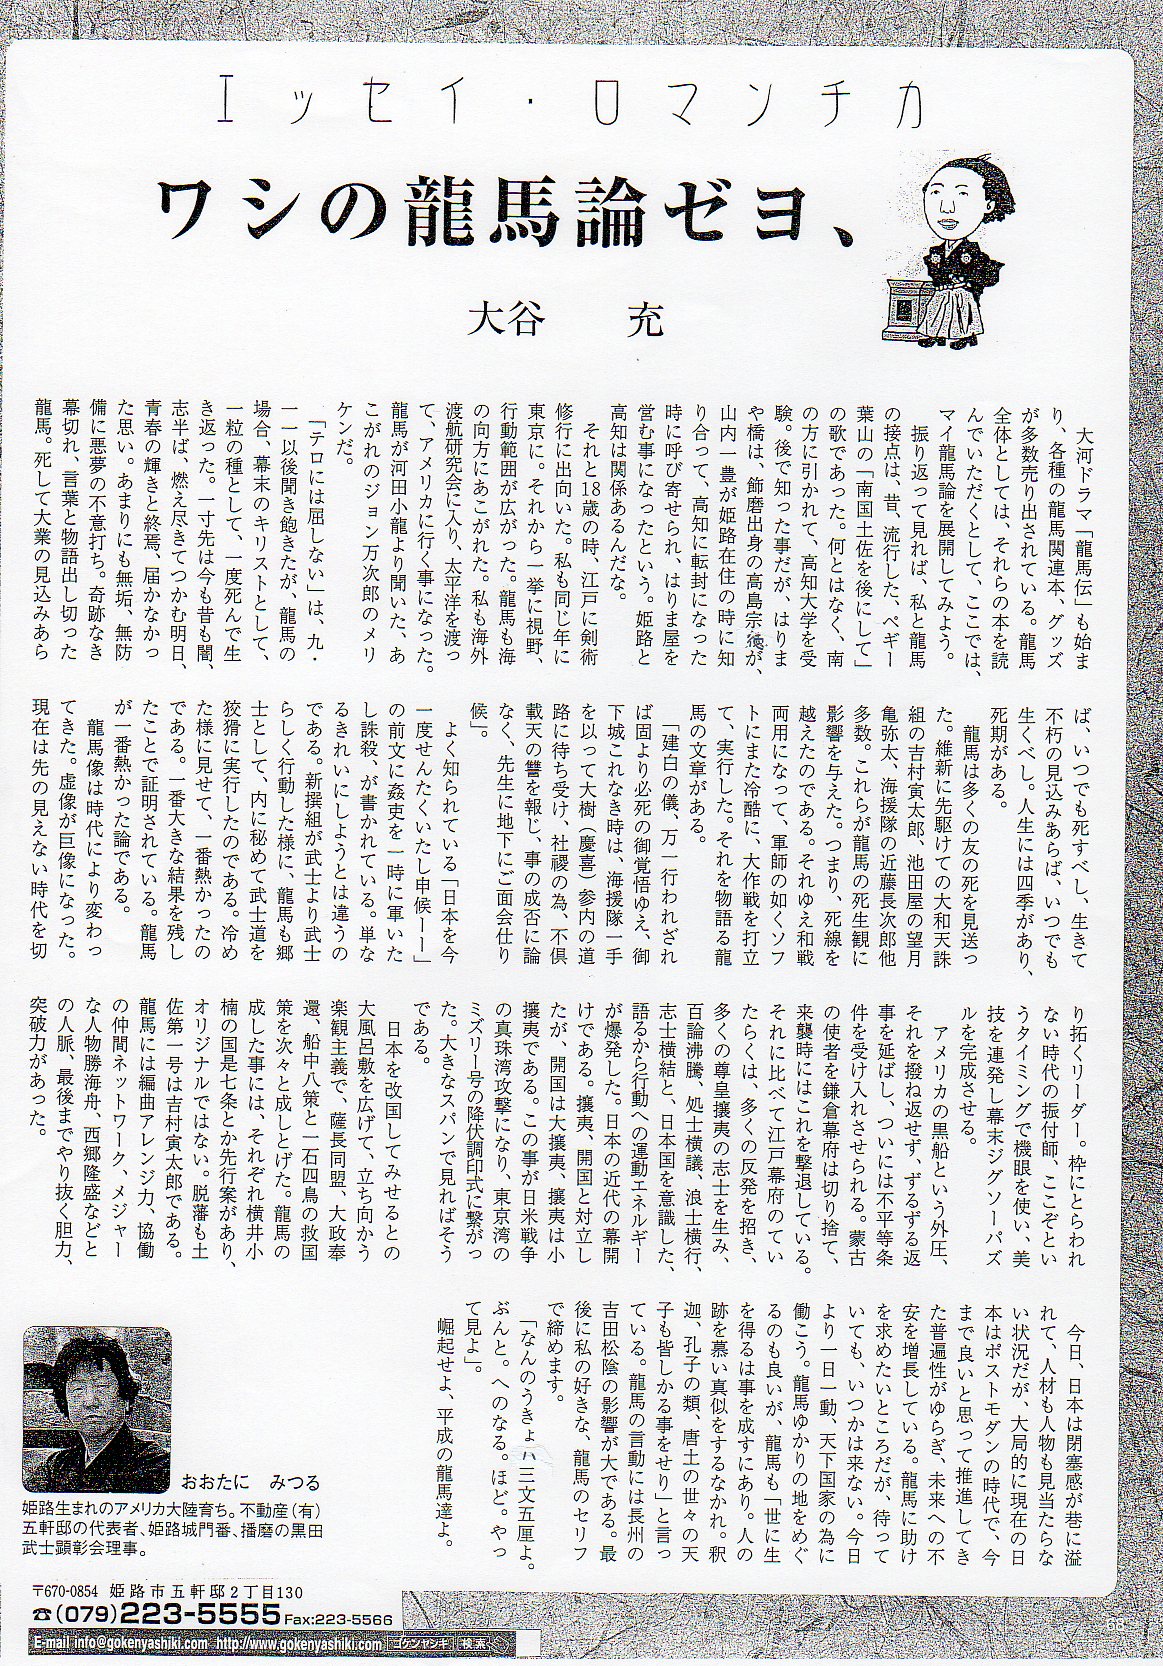 エッセイ・ロマンチカ
ワシの龍馬論ゼヨ、
大谷　充
　大河ドラマ「龍馬伝」も始ま
り、各種の龍馬関連本、グッズ
が多数売り出されている。龍馬
全体としては、それらの本を読
んでいただくとして、ここでは、
マイ龍馬論を展開してみよう。
　振り返って見れば、私と龍馬
の接点は、昔、流行した、ペギー
葉山の「南国土佐を後にして」
の歌であった。何とはなく、南
の方に引かれて、高知大学を受
験。後で知った事だが、はりま
や橋は、飾磨出身の高島宗徳が、
山内一豊が姫路在住の時に知
り合って、高知に転封になった
時に呼び寄せられ、はりま屋を
営む事になったという。姫路と
高知は関係あるんだな。
　それと18歳の時、江戸に剣術
修行に出向いた。私も同じ年に
東京に。それから一挙に視野、
行動範囲が広がった。龍馬も海
の向方にあこがれた。私も海外
渡航研究会に入り、太平洋を渡っ
て、アメリカに行く事になった。
龍馬が河田小龍より聞いた、あ
こがれのジョン万次郎のメリ
ケンだ。
　「テロには屈しない」は、九・
一一以後聞き飽きたが、龍馬の
場合、幕末のキリストとして、
一粒の種として、一度死んで生
き返った。一寸先は今も昔も闇、
志半ば、燃え尽きてつかむ明日、
青春の輝きと終焉、届かなかっ
た思い。あまりにも無垢、無防
備に悪夢の不意打ち。奇跡なき
幕切れ、言葉と物語出し切った
龍馬。死して大業の見込みあら
ば、いつでも死すべし、生きて
不朽の見込みあらば、いつでも
生くべし。人生には四季があり、
死期がある。
　龍馬は多くの友の死を見送っ
た。維新に先駆けての大和天誅
組の吉村寅太郎、池田屋の望月
亀弥太、海援隊の近藤長次郎他
多数。これらが龍馬の死生観に
影響を与えた。つまり、死線を
越えたのである。それゆえ和戦
両用になって、軍師の如くソフ
トにまた冷酷に、大作戦を打立
て、実行した。それを物語る龍
馬の文章がある。
　「建白の儀、万一行われざれ
ば固より必死の御覚悟ゆえ、御
下城これなき時は、海援隊一手
を以って大樹（慶喜）参内の道
路に待ち受け、社稷の為、不倶
載天の讐を報じ、事の成否に論
なく、先生に地下にご面会仕り
候」。
　よく知られている「日本を今
一度せんたくいたし申候ーー」
の前文に姦吏を一時に軍いた
し誅殺、が書かれている。単な
るきれいにしようとは違うの
である。新撰組が武士より武士
らしく行動した様に、龍馬も郷
士として、内に秘めて武士道を
狡猾に実行したのである。冷め
た様に見せて、一番熱かったの
である。一番大きな結果を残し
たことで証明されている。龍馬
が一番熱かった論である。
　龍馬像は時代により変わっ
てきた。虚像が巨像になった。
現在は先の見えない時代を切
り拓くリーダー。枠にとらわれ
ない時代の振付師、ここぞとい
うタイミングで機眼を使い、美
技を連発し幕末ジグソーパズ
ルを完成させる。
　アメリカの黒船という外圧、
それを撥ね返せず、ずるずる返
事を延ばし、ついには不平等条
件を受け入れさせられる。蒙古
の使者を鎌倉幕府は切り捨て、
来襲時にはこれを撃退している。
それに比べて江戸幕府のてい
たらくは、多くの反発を招き、
多くの尊皇攘夷の志士を生み、
百論沸騰、処士横議、浪士横行、
志士横結と、日本国を意識した、
語るから行動への運動エネルギー
が爆発した。日本の近代の幕開
けである。攘夷、開国と対立し
たが、開国は大攘夷、攘夷は小
攘夷である。この事が日米戦争
の真珠湾攻撃になり、東京湾の
ミズリー号の降伏調印式に繋がっ
た。大きなスパンで見ればそう
である。
　日本を改国してみせるとの
大風呂敷を広げて、立ち向かう
楽観主義で、薩長同盟、大政奉
還、船中八策と一石四鳥の救国
策を次々と成しとげた。龍馬の
成した事には、それぞれ横井小
楠の国是七条とか先行案があり、
オリジナルではない。脱藩も土
佐第一号は吉村寅太郎である。
龍馬には編曲アレンジ力、協働
の仲間ネットワーク、メジャー
な人物勝海舟、西郷隆盛などと
の人脈、最後までやり抜く胆力、
突破力があった。
　今日、日本は閉塞感が巷に溢
れて、人材も人物も見当たらな
い状況だが、大局的に現在の日
本はポストモダンの時代で、今
まで良いと思って推進してき
た普遍性がゆらぎ、未来への不
安を増長している。龍馬に助け
を求めたいところだが、待って
いても、いつかは来ない。今日
より一日一動、天下国家の為に
働こう。龍馬ゆかりの地をめぐ
るのも良いが、龍馬も「世に生
を得るは事を成すにあり。人の
跡を慕い真似をするなかれ。釈
迦、孔子の類、唐土の世々の天
子も皆しかる事をせり」と言っ
ている。龍馬の言動には長州の
吉田松陰の影響が大である。最
後に私の好きな、龍馬のセリフ
で締めます。
　「なんのうきょハ三文五厘よ。
ぶんと。へのなる。ほど。やっ
て見よ」。
　崛起せよ、平成の龍馬達よ。
おおたに　みつる
姫路生まれのアメリカ大陸育ち。不動産（有）
五軒邸の代表者、姫路城門番、播磨の黒田
武士顕彰会理事。
〒670-0854 姫路市五軒邸2丁目130
☎(079)223-5555 Fax:223-5566
E-mail info@gokenyashiki.com http://www.gokenyashiki.com ゴケンヤシキ 検索